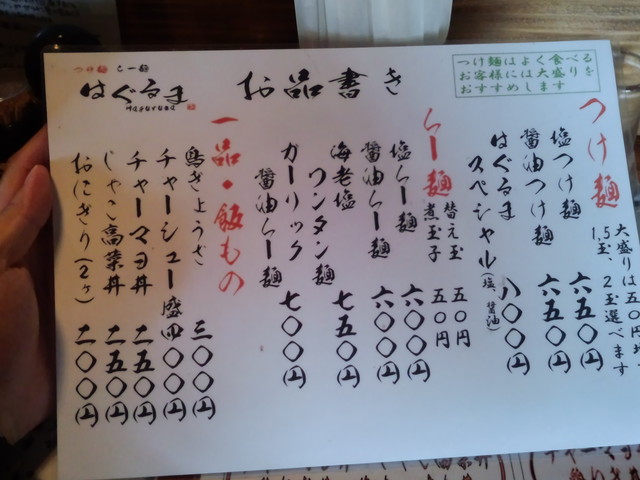 つけ麺 らー麺
はぐるま
HAGURUMA
お品書き
つけ麺はよく食べる
お客様には大盛りを
おすすめします
つけ麺
大盛りは五〇円増
1.5玉、2玉選べます
塩つけ麺 六五〇円
醤油つけ麺 六五〇円
はぐるま
スペシャル(塩、醤油) 八〇〇円
らー麺
替え玉 五〇円
煮玉子 五〇円
塩らー麺 六〇〇円
醤油らー麺 六〇〇円
海老塩
ワンタン麺 七五〇円
ガーリック
醤油らー麺 七〇〇円
一品・飯もの
鳥ぎょうざ 三〇〇円
チャーシュー盛 四〇〇円
チャーマヨ丼 二五〇円
じゃこ高菜丼 二五〇円
おにぎり(2ヶ) 二〇〇円